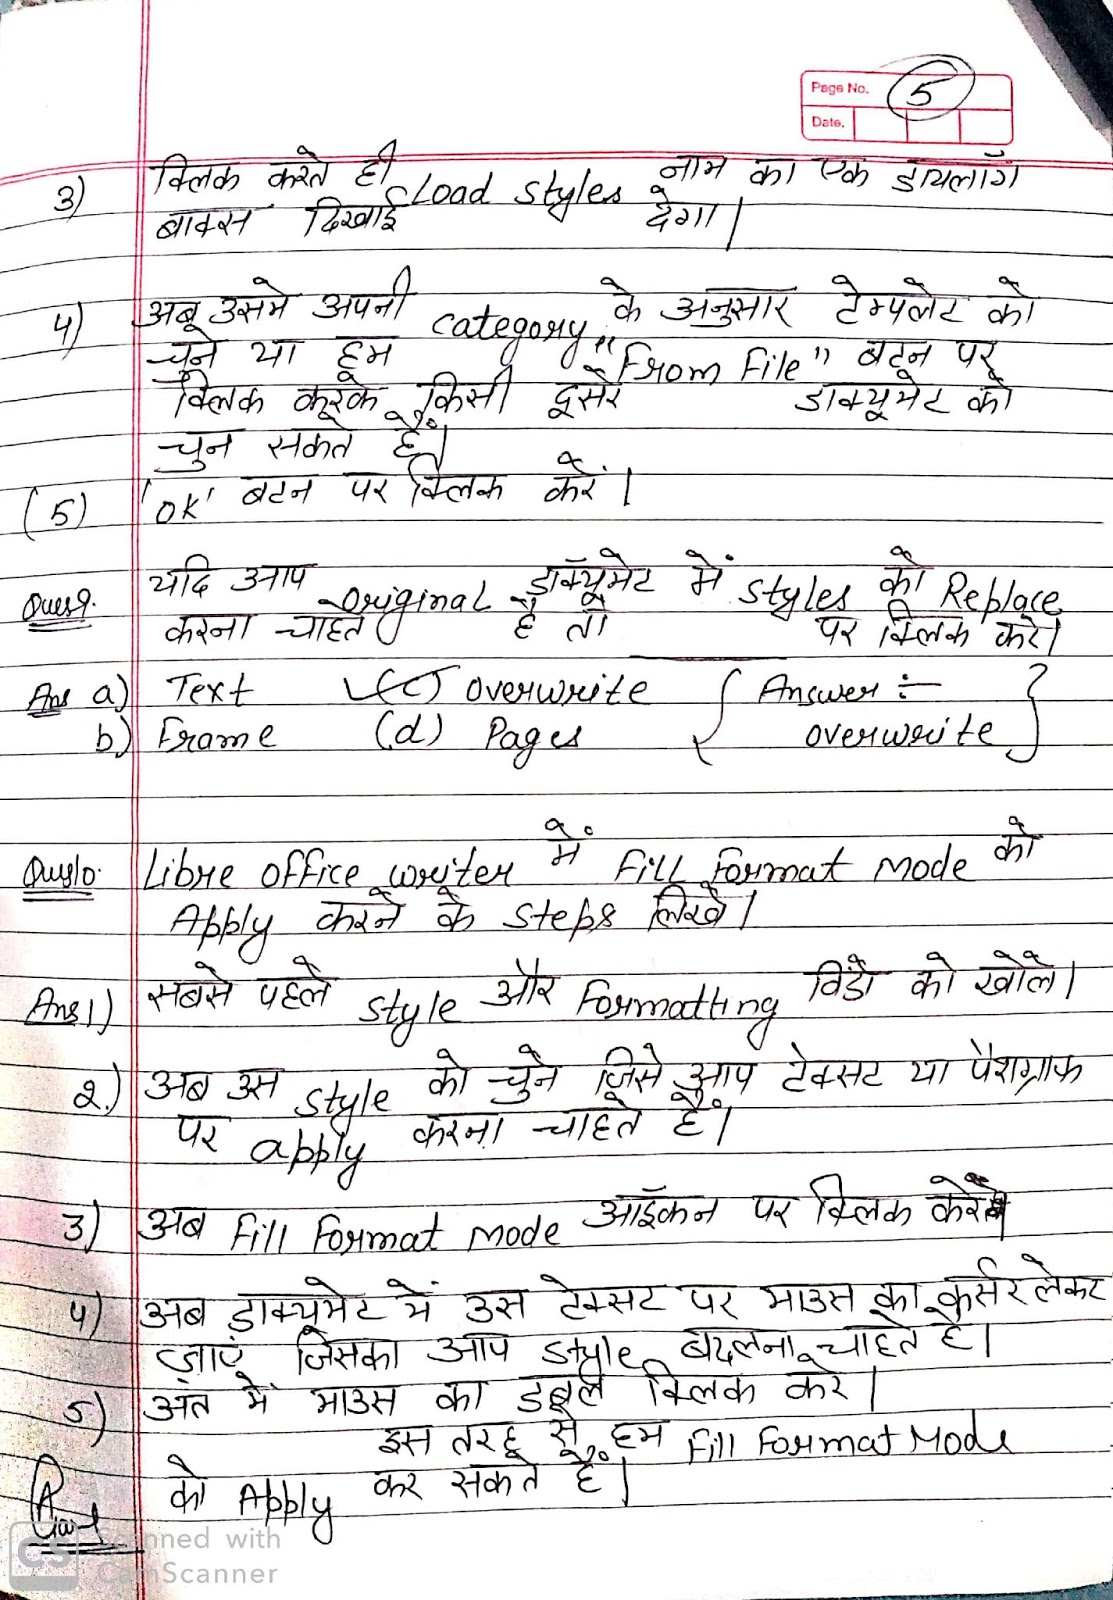 Page No. 5
Date.
3) क्लिक करते ही Load styles नाम का एक डायलॉग
बाक्स दिखाई देगा।
4) अब उसमे अपनी category के अनुसार टेम्पलेट को
चुने या हम "From File" बटन पर
क्लिक करके किसी दूसरे डाक्यूमेंट को
चुन सकते हैं।
(5) 'OK' बटन पर क्लिक करें।
Ques9. यदि आप original डॉक्यूमेंट में styles को Replace
करना चाहते है तो ______ पर क्लिक करे।
Ans a) Text (c) overwrite { Answer :-
b) Frame (d) Pages overwrite }
Ques10. Libre office writer में Fill Format Mode को
Apply करने के steps लिखें।
Ans 1) सबसे पहले style और Formatting विंडो को खोलें।
2.) अब उस style को चुने जिसे आप टेक्सट या पैराग्राफ
पर apply करना चाहते है।
3) अब Fill Format mode आइॅकन पर क्लिक करें
4) अब डाक्यूमेंट में उस टेक्सट पर माउस का कर्सर लेकर
जाएं जिसका आप style बदलना चाहते है।
5) अंत में माउस का डबल क्लिक करे।
इस तरह से हम Fill Format Mode
को Apply कर सकते हैं।
Scanned with
CS CamScanner